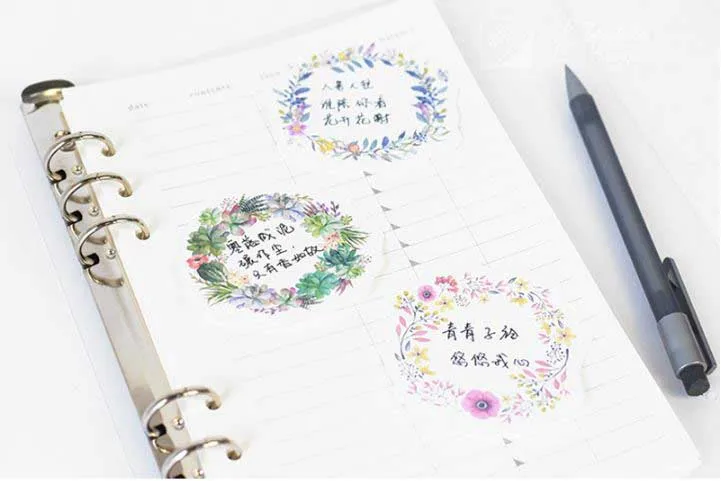 date
人来人往
我陪你看
花开花谢
零落成泥
碾作尘，
只有香如故
青青子衿
悠悠我心